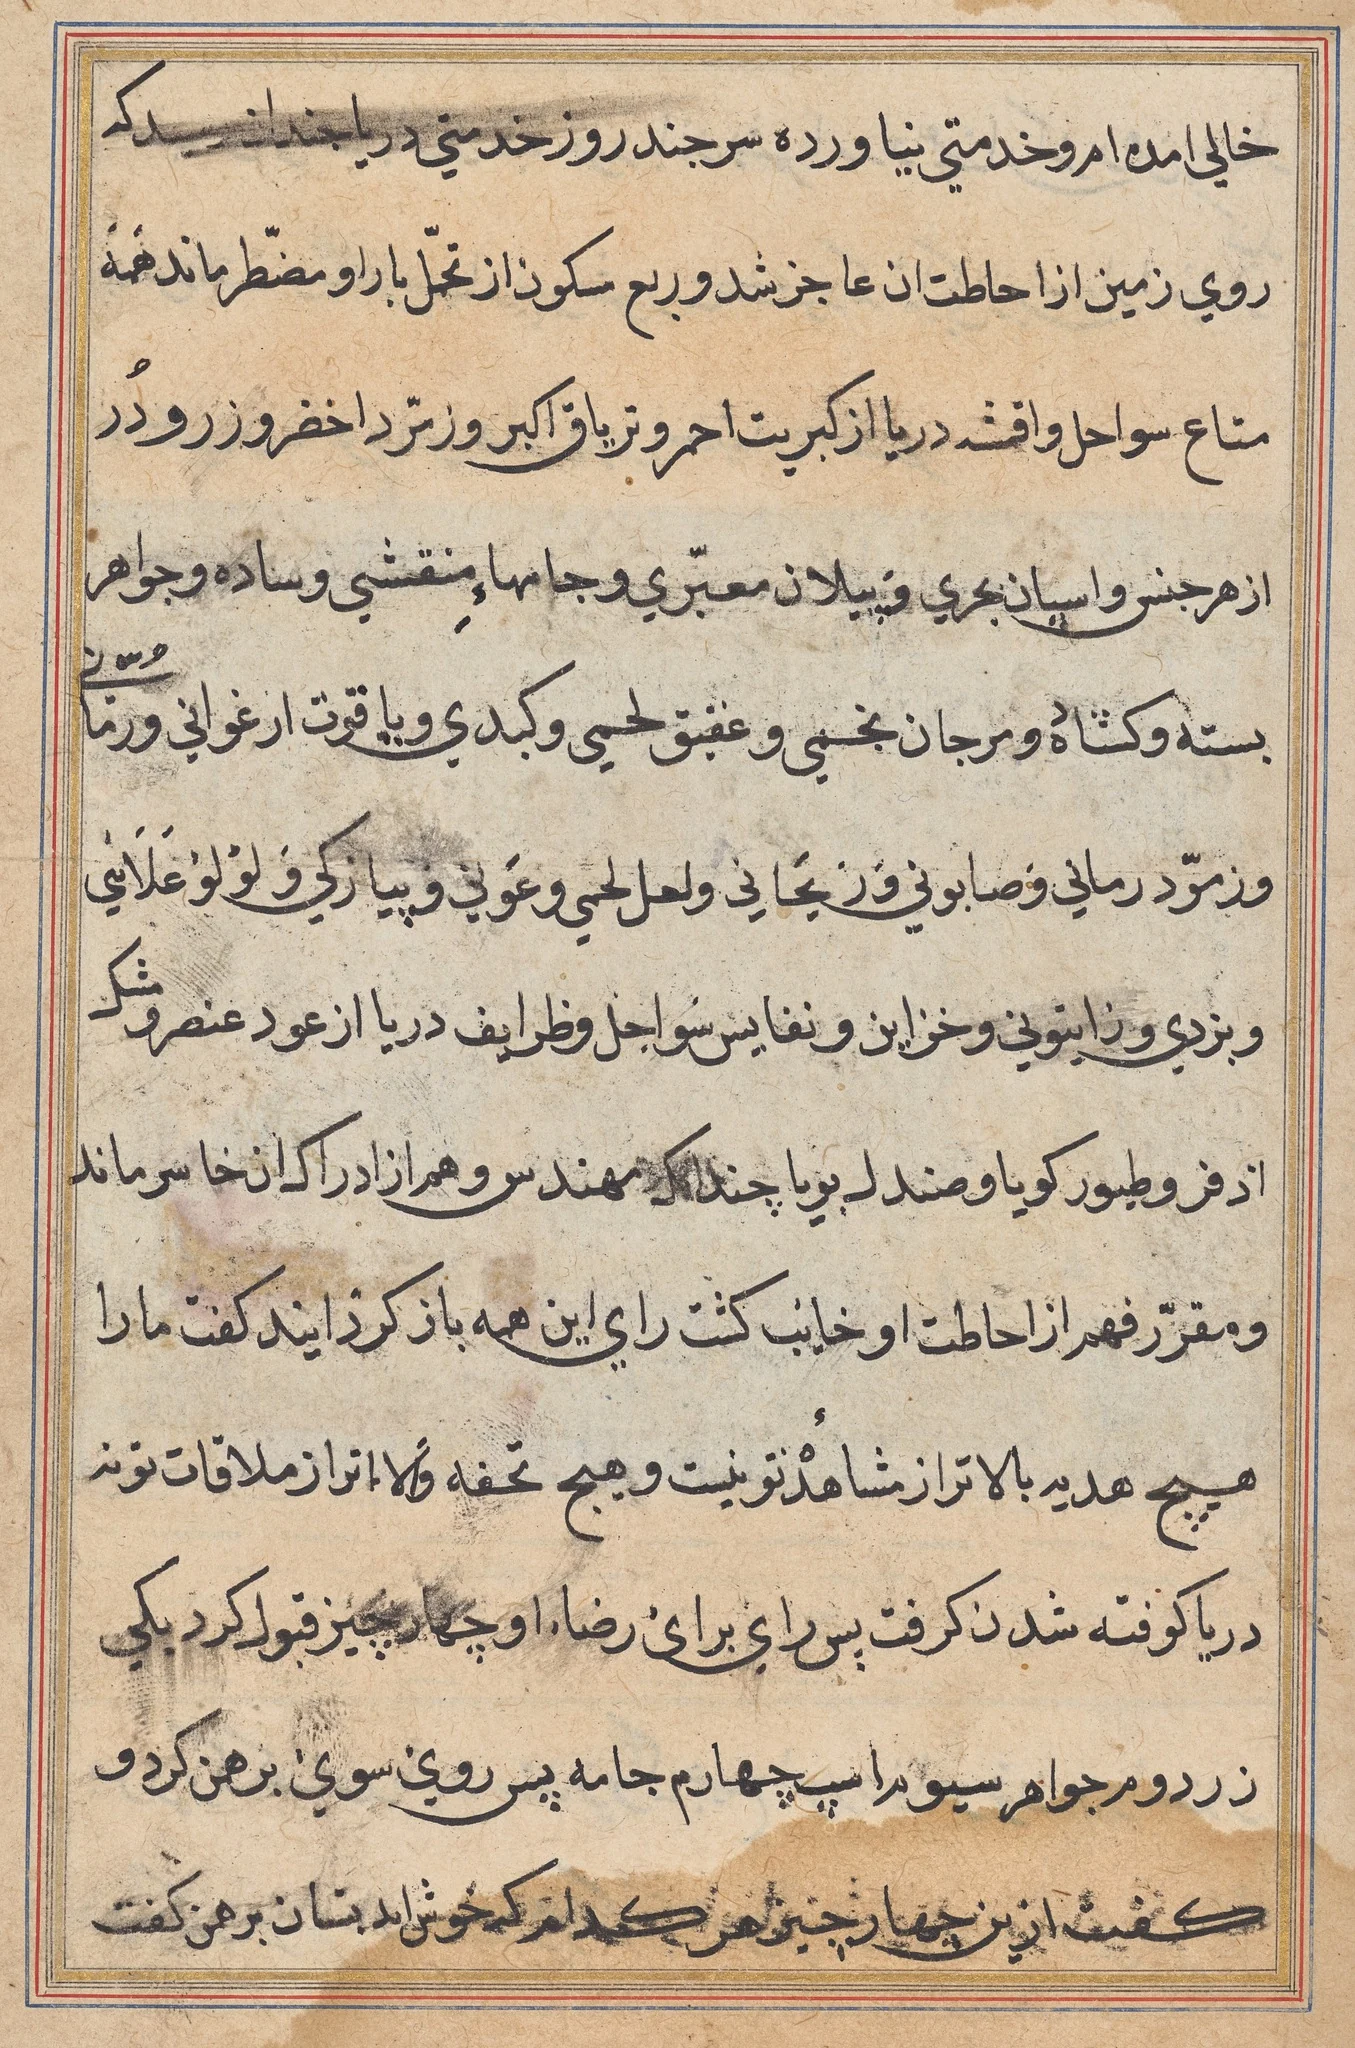 خالي امده ام و خدمتي نياورده سر جند روز خدمتي دريا جندان رسيد كه
روي زمين از احاطت ان عاجز شد و ربع سكون از تحمّل بار او مضّطر ماند همَهٔ
متاع سواحل و اقمشه دريا از كبريت احمر و ترياق اكبر و زمرّد اخضر و زر و دُر
از هر جنس و اسپان بحري و پيلان معبّري و جامهاءِ منقشي و ساده و جواهر
بسته و كشاده و مرجان نجمي و عقيق لحمي و كبدي و ياقوت ارغواني و رمّاني
و زمرّد رماني و صابوني و زيحَاني و لعل لحمي و عوني و پيازكي و لؤلؤ غلاني
و بزدي و زايتوني و خزاين و نفايس سواحل و ظرايف دريا از عود عنصر و مشك
اذفر و طيور كويا و صندل بويا چنداكه مهندس وهم از ادراك ان خاسر ماند
و مقرّر فهم از احاطت او خايب كشت راي اين همه باز كرذانيد كفت ما را
هيچ هديه بالاتر از مشاهدهٔ تو نيست و هيج تحفه والاتر از ملاقات تو نه
دريا كوفته شدن كرفت پس راي براي رضاء او چهار چيز قبول كرد يكي
زر دوم جواهر سيوم اسپ چهارم جامه پس روي سوي برهمن كرد و
كفت ازين چهار چيز هر كدام كه خوش ايد بستان برهمن كفت